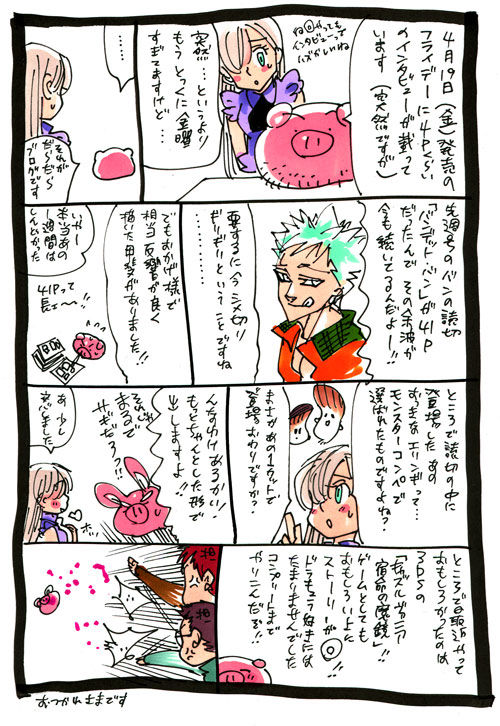 4月19日(金)発売の
フライデーに4Pくらい
のインタビューが載って
います(突然ですが)
ねやっても
インタビューって
ハズかしいね
突然…というより
もうとっくに金曜
すぎてますけど…
……
それが
だらだら
ブログです
先週号のバンの読切
「バンデット・バン」が41P
だったんで その余波が
今も続いてるんだよー!!
要するに今〆切り
ギリギリということですね
………
でもおかげ様で
相当反響が良く
描いた甲斐がありました!!
いやー
本当あの
1週間は
しんどかった
41Pって
長ェ〜!!
ところで読切の中に
登場した あの
おっきなエリンギって…
モンスターコンペで
選ばれたものですよね?
まさかあの1カットで
登場おわりですか?
んなわけあるかい!
もっちゃんとした形で
出しますよ!!
それじゃ
まるで
サギだろっ!!
あ 少し
安心しました
ホッ
ところで最近やって
おもしろかったのは
3DSの
「キャッスルヴァニア
宿命の魔鏡」!!
ゲームとしても
おもしろい上に
ストーリーが◎
ドラキュラ好きには
たまりませんでした
コンプリートまで
やりこんだぜ!!
担
担